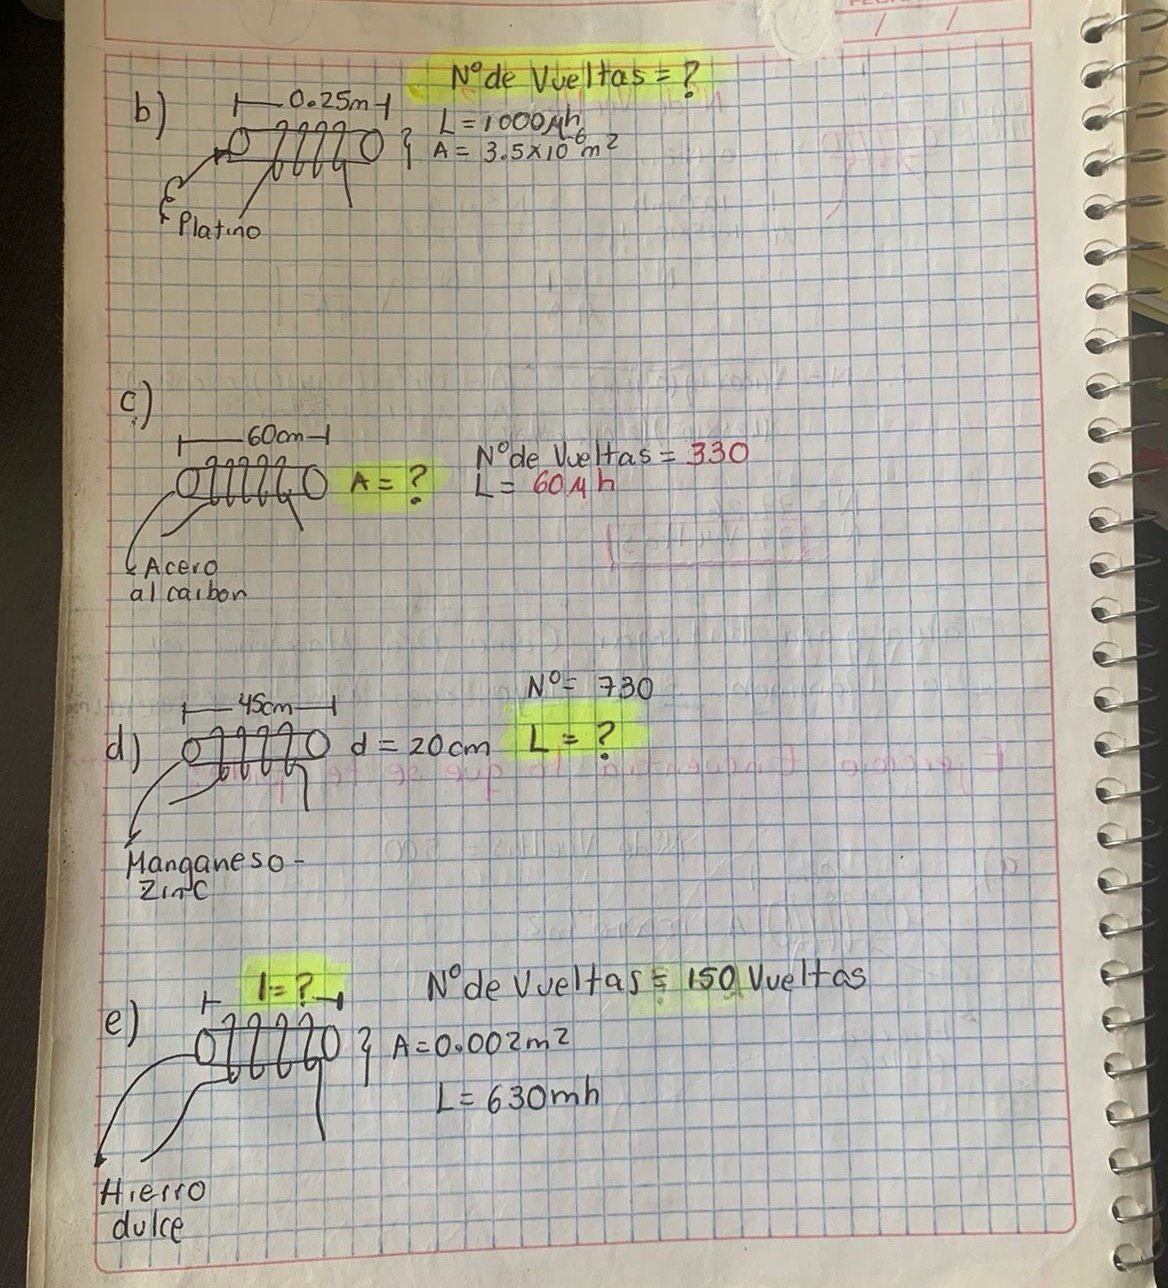 Nº de Vueltas = ?
b)
0.25m
L = 1000μh
A = 3.5x10⁻⁶m²
Platino
c)
60cm
Nº de Vueltas = 330
A = ?
L = 60μh
Acero
al carbon
Nº = 730
45cm
d)
d = 20cm
L = ?
Manganeso-
Zinc
l = ?
Nº de Vueltas = 150 Vueltas
e)
A = 0.002m²
L = 630mh
Hierro
dulce